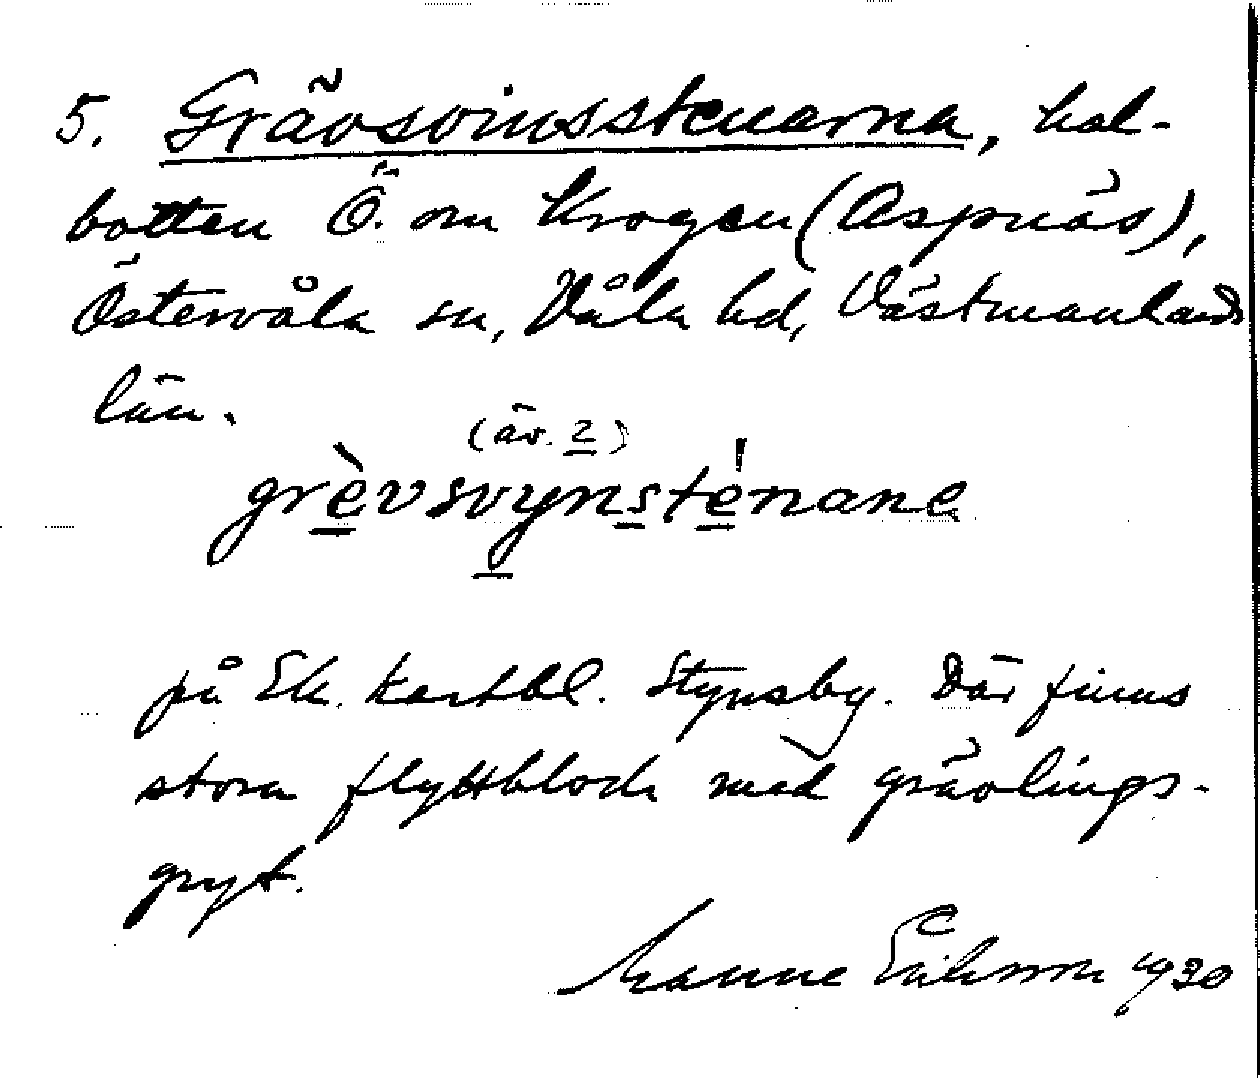 5. Grävsvinsstenarna, hol-
botten Ö. om Krogen (Aspnäs),
Östervåla sn, Våla hd, Västmanlands
län.
(äv. 2)
grèvsvynsténane
på Ek. kartbl. Stynsby. Där finns
stora flyttblock med grävlings-
gryt.
Manne Eriksson 1930